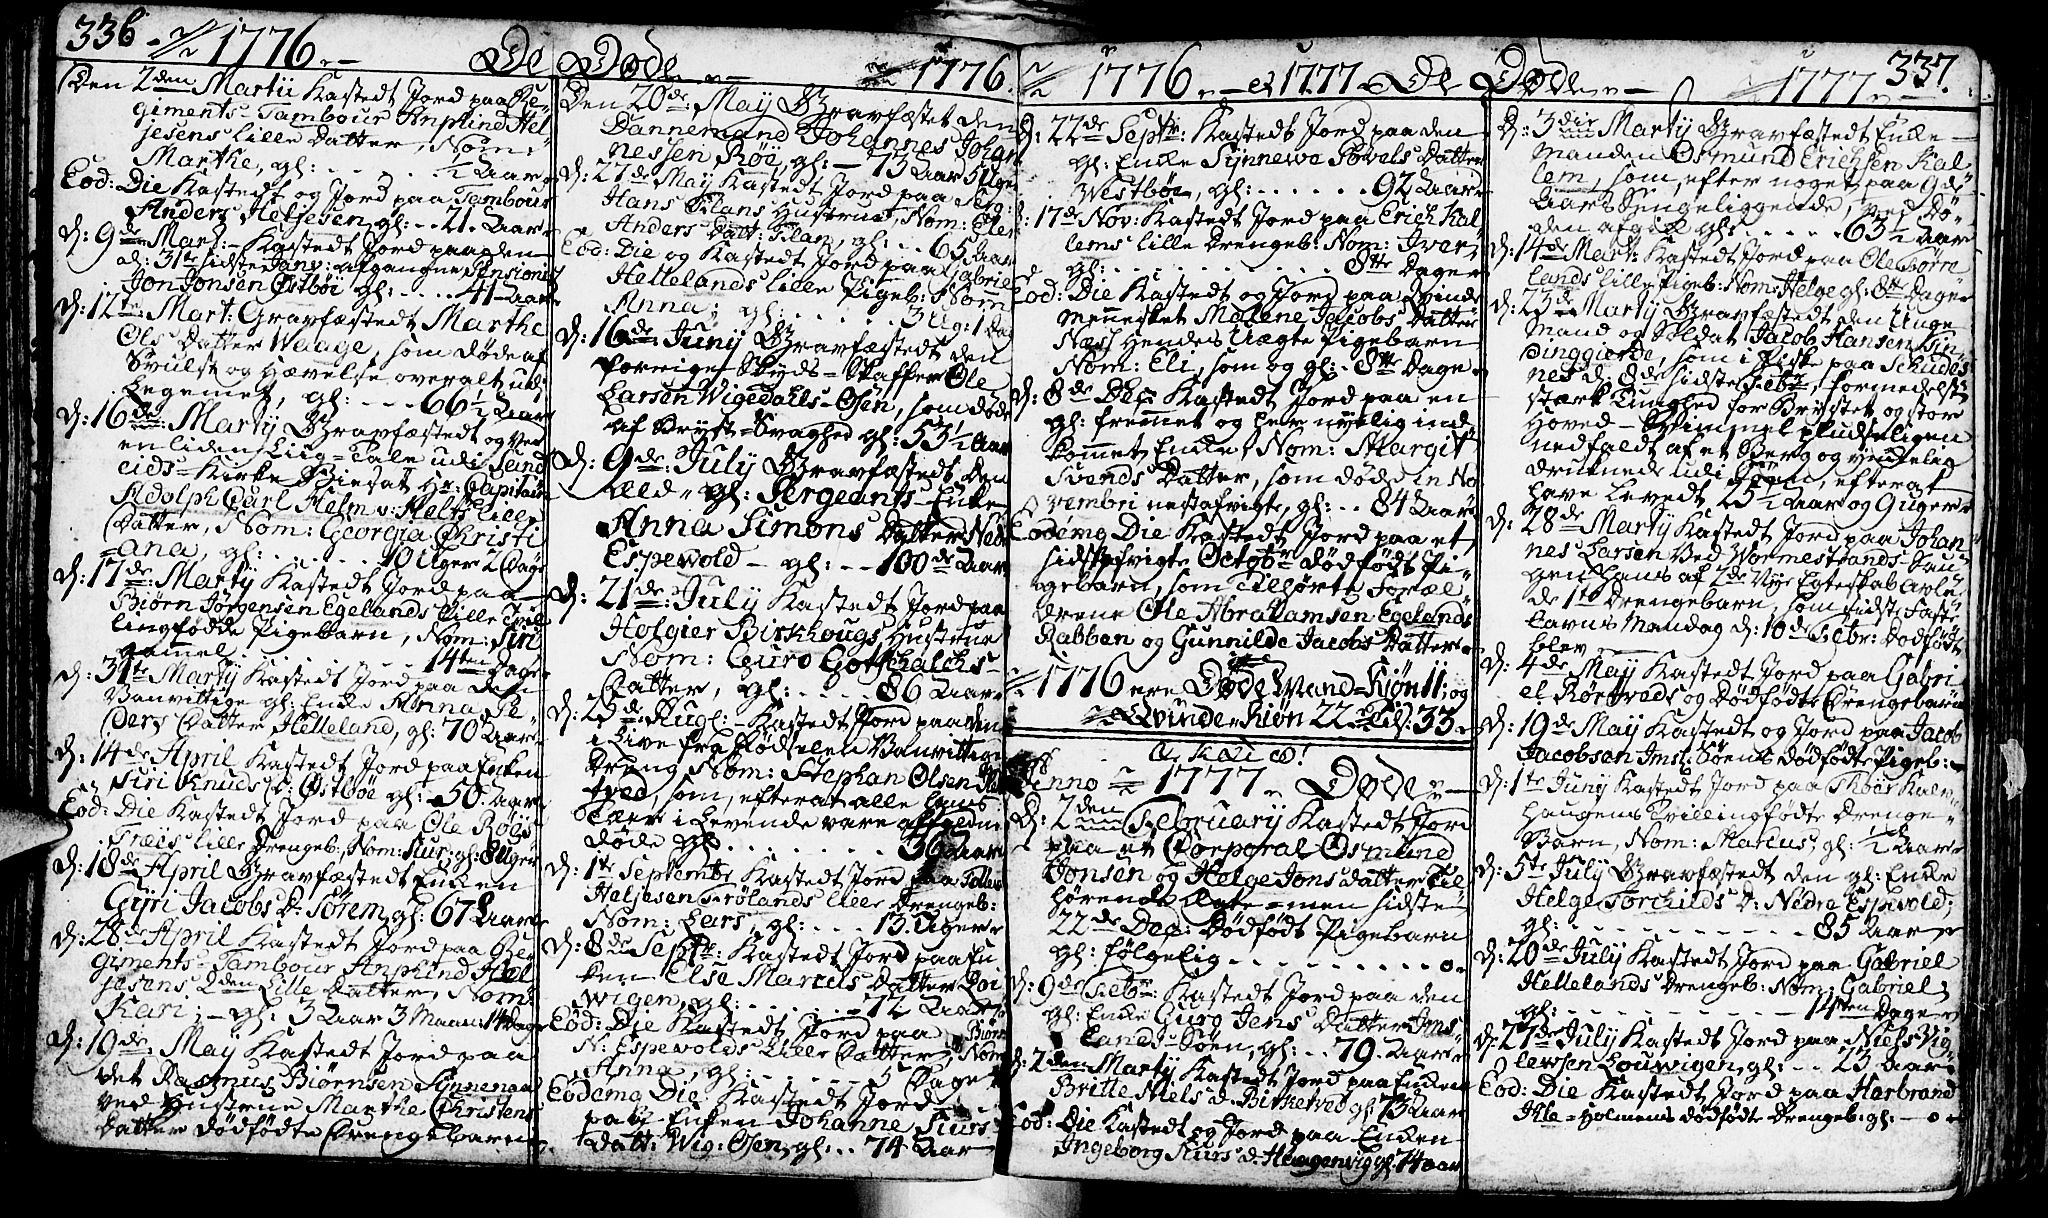 336. 1776. De Døde 1776.
Den 2den Martii Kastedt Jord paa Re-
giments-Tambour Anphind Hel-
jesens lille Datter, Nom:
Marthe, gl: . . . . . ½ Aar
Eod: Die Kastedt og Jord paa Tambour
Anders Heljesen, gl: . . 21. Aar
D: 9de Mart: Kastedt Jord paa den
d: 31te sidste Janv: afgangne Pensioner
Jon Jonsen Østbøe gl: . . . . 41 Aar
D: 12te Mart: Gravfæstedt Marthe
Ols Datter Waage, som døde af
Svulst og Hævelse overalt udi
Legemet, gl: . . . 66½ Aar
D: 16de: Martij Gravfæstedt og ved
en liden Liig-Tale udi Sand
eids-Kirke Biesat Hr: Capitain
Adolph Carl Helm v: Heltz lille
Datter, Nom: Georgia Christi
=ana, gl: . . . . 10 Uger 2 Dage
D: 17de: Martij Kastedt Jord paa
Biørn Jørgensen Egelands lille Tvil
lingfødde Pigebarn, Nom: Siri
gamel . . . . . 14ten Dage
D: 31te Martij Kastedt Jord paa den
Vanvittige gl: Enke Anna Pe-
ders Datter Helleland, gl: 70 Aar
D: 14de April Kastedt Jord paa Enken
Siri Knuds D: Østbøe gl: 50. Aar
Eod: Die Kastedt Jord paa Ole Røgs
lille Drengeb: Nom: Siur, gl: 8 Uger
D: 18de April Gravfæstedt Enken
Gyri Jacobs D: Sørem, gl: 67 Aar
D: 28de April Kastedt Jord paa Re-
giments-Tambour Anphind Hel
jesens 2den lille Datter, Nom:
Kari; gl: 3 Aar 3 Maan: 14 Dage
D: 19de: Maij Kastedt Jord paa
det Rasmus Biørnsen Sinnenaa
ved Hustrue Marthe Christens
Datter dødfødte Drengebarn
Den 20de: Maij Gravfæstet den
Dannemand Johannes Johan
nessen Røe, gl: 73 Aar 5 Uger
D: 27de Maij Kastedt Jord paa Serg:
Hans Filans Hustrue, Nom: Elen
Anders Datt: Filan, gl: . . 65 Aar
Eod: Die og Kastedt Jord paa Gabriel
Hellelands lille Pigeb: Nom:
Anna, gl: . . . . . 3 Ug: 1 Dag
D: 16de Junij Gravfæstedt den
forrige Skyds-Skaffer Ole
Larsen Wigedahls-Osen, som døde
af Bryst-Svaghed gl: 53½ Aar
D: 9de: Julij Gravfæstedt den
gl: Sergeants-Enke
Anna Simons Datter Nedre
Espevold gl: . . 100de Aar
D: 21de: Julij Kastedt Jord paa
Holgier Birkhougs Hustrue
Nom: Guro Gotschalchs-
Datter, gl: . . . . 86 Aar
D: 25de: Aug: Kastedt Jord paa den
i Live fra Fødselen Vanvittige
Dreng Nom: Stephan Olsen
tved, som, efterat alle hans
Tæer i Levende vare
døde gl: . . . . . . 36 Aar
D: 1te Septembr Kastedt Jord paa Tollev
Heljesen Frølands lille Drengeb:
Nom: Lers, gl: . . . 13. Uger
D: 8de Septbr: Kastedt Jord paa En
ken Else Marcels Datter Loi
wigen, gl: . . . . . 72 Aar
Eod: Die Kastedt Jord paa Biørn
N: Espevolds lille Datter, Nom:
Anna, gl: . . . . . . 5 Dage
Eodemq Die Kastedt Jord
paa Enken Johanne Siurs
Datt: Wig: Osen, gl: . . 74 Aar
1776 et 1777 De Døde 1777 337.
D: 22de Septbr: Kastedt Jord paa den
gl: Enke Synneve Povels Datter
Westbøe, gl: . . . . . . 92 Aar
D: 17de Nov: Kastedt Jord paa Erich Kal
lems lille Drengeb: Nom: Iver,
gl: . . . . . . . . . 8tte Dager
Eod: Die Kastedt og Jord paa Qvinde
Mennesket Malene Jacobs Datter
Næss Hendes Uægte Pigebarn
Nom: Eli, som og gl: . 8tte Dage
D: 8de Dec: Kastedt Jord paa en
gl: fremmet og her nyelig ind
kommet Enke, Nom: Margit
Svends Datter, som døde in No
vembri nestafvigte, gl: . . 84 Aar
Eodemq Die Kastedt Jord paa et
sidstafvigte Octobr dødfødt Pi
gebarn, som Tilhørte Foræl
drene Ole Abrahamsen Egelands
Rabben og Gunnilde Jacobs Datter
1776 ere Døde Mand-Kiøn 11; og
Qvinde-Kiøn 22 = Tils: 33.
Anno 1777. Døde
D: 2den Februarij Kastedt Jord
paa et Corporal Osmund
Jonsen og Helge Jons datter til
hørende Ægte = men sidste
22de Dec: Dødfødt Pigebarn
gl: følgelig . . . . . . . . o.
D: 9de Febr: Kastedt Jord paa den
gl: Enke Guro Jens Datter Ims
lands-Søen, gl: . . 79. Aar
D: 2den Martij Kastedt Jord paa Enken
Britte Niels d: Birkeved gl: 73 Aar
Eod: Die Kastedt og Jord paa Enken
Ingeborg Siurs d: Haagenvig gl: 74 Aar
D: 3die Martij Gravfæstedt Enke-
Manden Osmund Erichsen Kal
lem, som, efter noget paa 9de
Aars Sengeliggende, ved Dø-
den afgik gl: . . . . . 63½ Aar
D: 14de Mart: Kastedt Jord paa Ole Børre
lands lille Pigeb: Nom: Helge gl: 8tte Dage
D: 23de Martij Gravfæstedt den Unge
Mand og Soldat Jacob Hansen Fin-
dinggierde, som i Fiske paa Schudes
nes d: 8de sidste Febr:, formedelst
stærk Tunghed for Brystet og stor
Hoved-Svimmel pludseligen
nedfaldt af et Berg og ynkelig
druknede udi Søen, efterat
have Levedt 25½ Aar og 6 Uger
D: 28de Martij Kastedt Jord paa Johan
nes Larsen Ved Wormestrands-Sau
gen hans af 2de Nye Egteskab avle-
de 1te Drengebarn, som sidste Faste
lavns Mandag d: 10de Febr: dødfødt
blev
D: 4de Maij Kastedt Jord paa Gabri
el Rørtveds og Dødfødte Drengebarn
D: 19de Maij Kastedt og Jord paa Jacob
Jacobsen Imsl: Søens dødfødte Pigeb:
D: 1te Junij Kastedt Jord paa Thoer Kalv-
haugens Tvillingfødte Drenge-
Barn, Nom: Marcus, gl: ½ Aar
D: 5te Julij Gravfæstedt den gl: Enke
Helge Torchilds D: Nedre Espevold;
gl: . . . . . . . . . . 85 Aar
D: 20de Julij Kastedt Jord paa Gabriel
Hellelands Drengeb: Nom: Gabriel;
gl: . . . . . . . . . 14ten Dage
D: 27de Julij Kastedt Jord paa Niels Vig
lewsen Louwigen, gl: . . 23 Aar
Eod: Die Kastedt Jord paa Harbrand
Ile-Holmens dødfødte Drengeb: gl: o